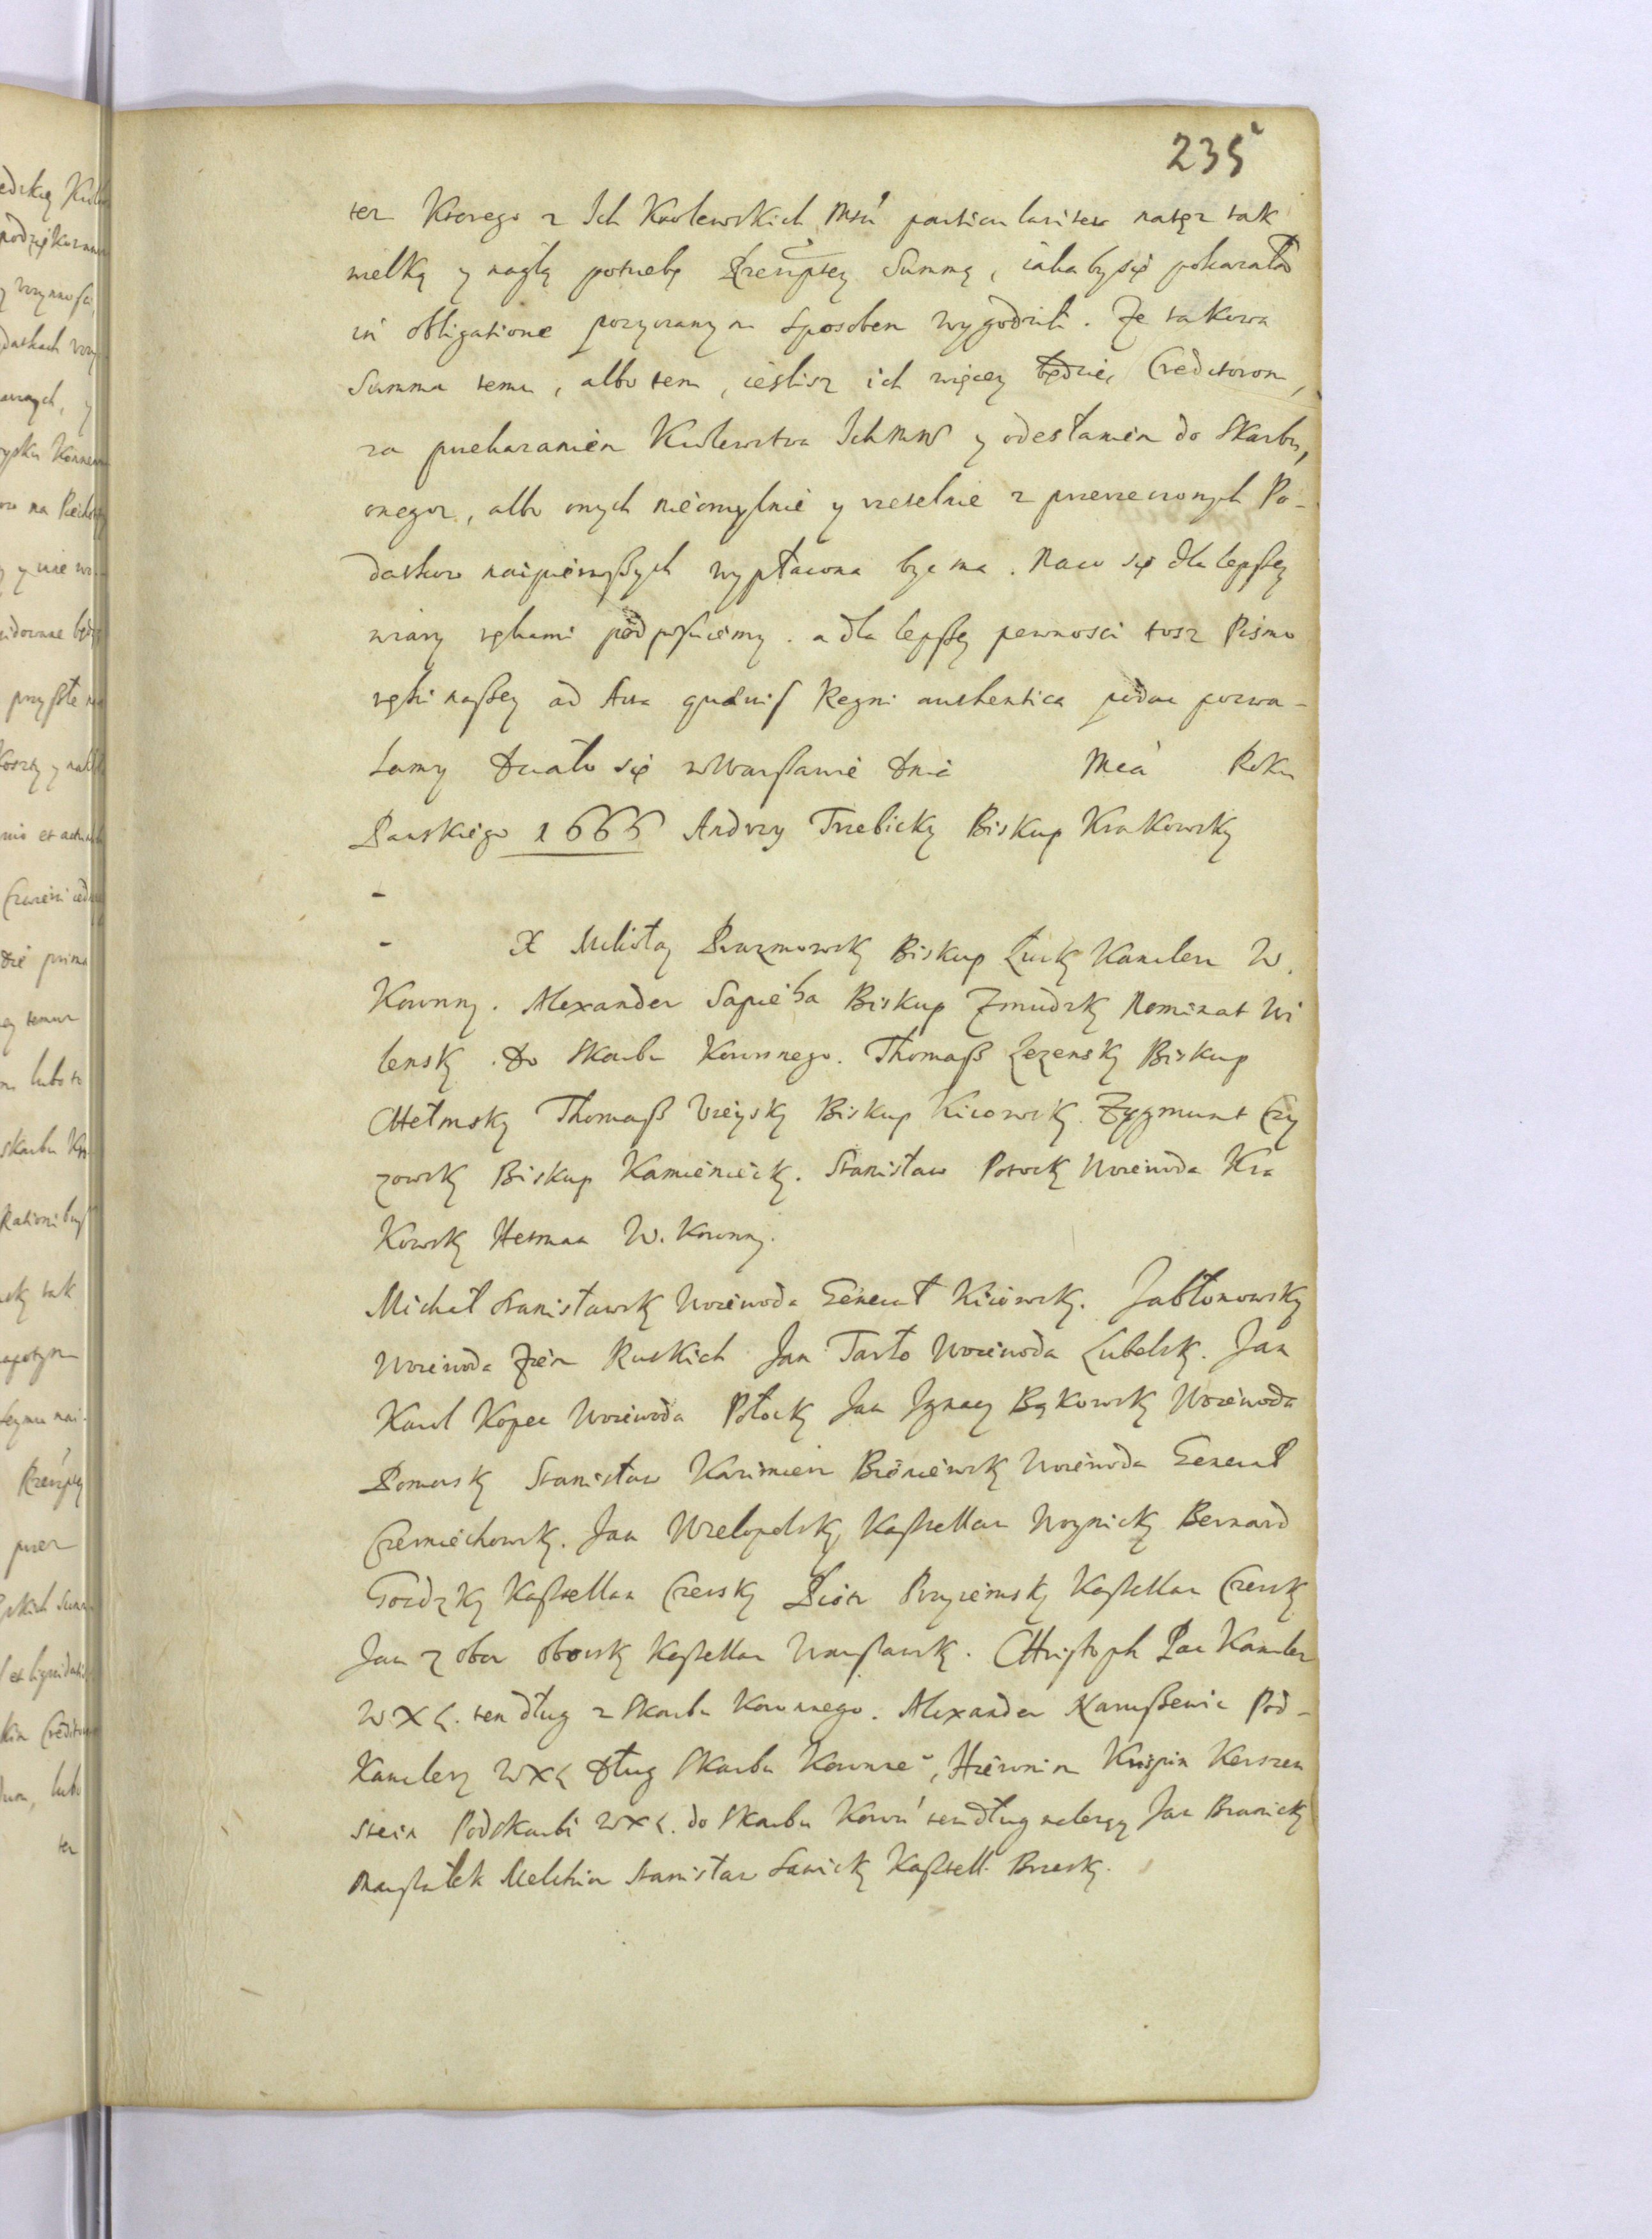 235
ter Ktorego z Ich Krolewskich Mśći particulariter natęz tak
wielką y nagłą potrzebę Rzeczyptey Summę, iakaby się pokazała
in obligatione pozyczanym sposobem wygodzili. Ze takowa
Summa temu, albo tem, ieslisz ich więcey będzie, Creditorom,
za przekazaniem Krolewstwa IchMM y odesłaniem do Skarbu,
onegoz, albo onych nieomylnie y rzetelnie z przerzeczonych Po-
datkow naipierwßych wypłacona byc ma. Na co się dla lepßey
wiary rękami podpisuiemy. a dla lepßey pewnosci tosz Pismo
ręki naßey ad Acta quaevis Regni authentica podac pozwa-
lamy Działo się w Warßawie dnia Mca Roku
Panskiego 1666 Andrzy Trzebicky Biskup Krakowsky
-
- X Mikołay Prazmowsky Biskup Łucky Kanclerz W.
Koronny. Alexander Sapieha Biskup Zmudzky Nominat Wi
lensky. do Skarbu Koronnego. Thomaß Lezensky Biskup
CHełmsky Thomaß Uieysky Biskup Kiiowsky. Zygmunt Czy
zowsky Biskup Kamieniecky. Stanisław Potocky Woiewoda Kra
Kowsky Hetman W. Koronny.
Michał Stanisławsky Woiewoda Generał Kiiowsky. Jabłonowsky
Woiewoda Ziem Ruskich Jan Tarło Woiewoda Lubelsky. Jan
Karol Kopec Woiewoda Połocky Jan Jgnacy Bąkowsky Woiewoda
Pomorsky Stanisław Kazimierz Bieniewsky Woiewoda Generał
Czerniechowsky. Jan Wielopolsky Kaßtellan Woynicky Bernard
Gozdzky Kaßtellan Czersky Piotr Przyiemsky Kaßtellan Czersky
Jan z obor oborsky Kaßtellan Warßawsky. CHristoph Pac Kanclerz
WXL. ten dług z Skarbu Koronnego. Alexander Narußewic Pod-
Kanclerz WXL dług Skarbu Koronne, Hieronim Kriszpin Kerszen
stein Podskarbi WXL. do Skarbu Koron ten dług nalezy Jan Branicky
Marßałek Melchior Stanisław Sawicky Kaßtell. Brzesky.